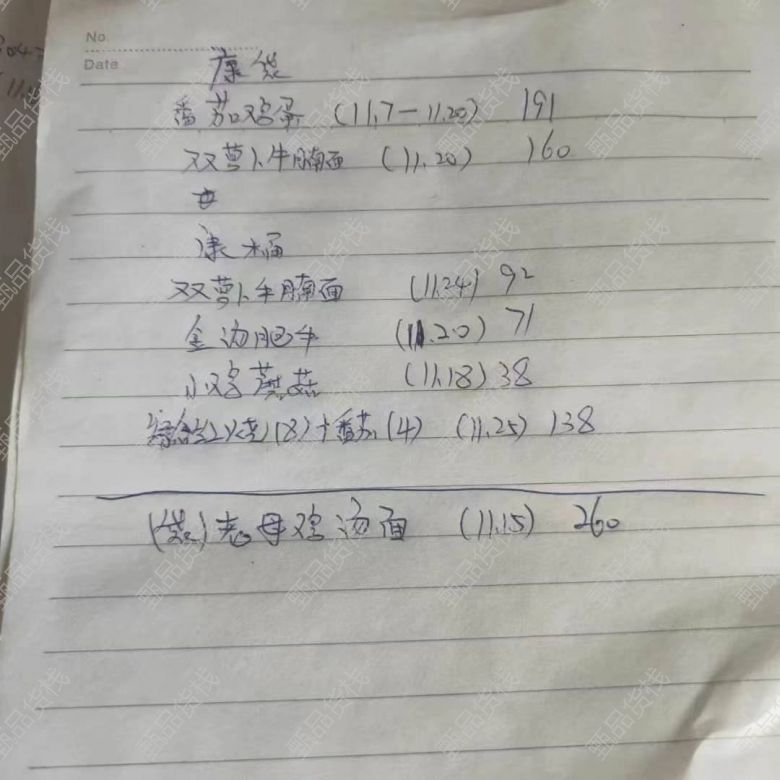 No.
Date
康袋
番茄鸡蛋 (11.7-11.20) 191
双萝卜牛腩面 (11.20) 160
康桶
双萝卜牛腩面 (11.24) 92
金汤肥牛 (11.20) 71
小鸡蘑菇 (11.18) 38
综合红烧(8)+番茄(4) (11.25) 138
(袋)老母鸡汤面 (11.15) 260
甄品货栈